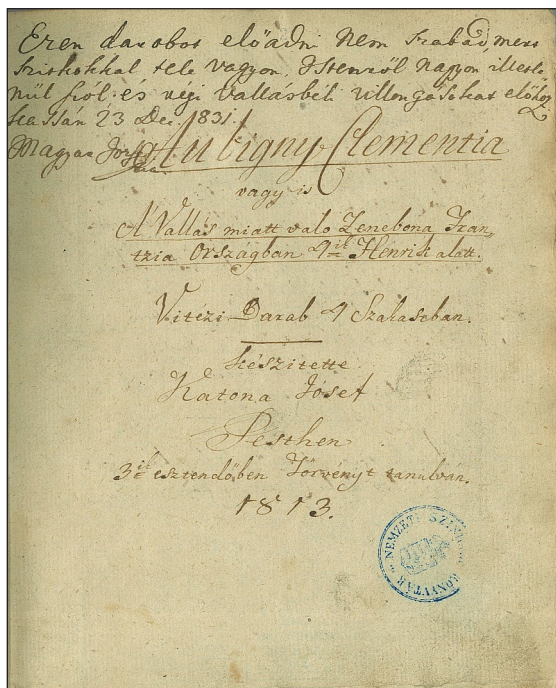 Ezen darabot előadni Nem szabad, mert
szitkokkal tele vagyon, Istenről nagyon illetle
nül szól és régi Vallásbeli villongásokat előhoz
Kassán 23 Dec. 1831.
Magyar
Aubigny Clementia
vagy is
A' Vallás miatt való Zenebona Fran,
tzia Országban 4ik Henrik alatt.
Vitézi Darab 4 Szakaszban.
készitette
Katona Jósef
Pesthen
3ik esztendőben Törvényt tanulván.
1813.
NEMZETI SZÍNH
KÖNYVTÁR